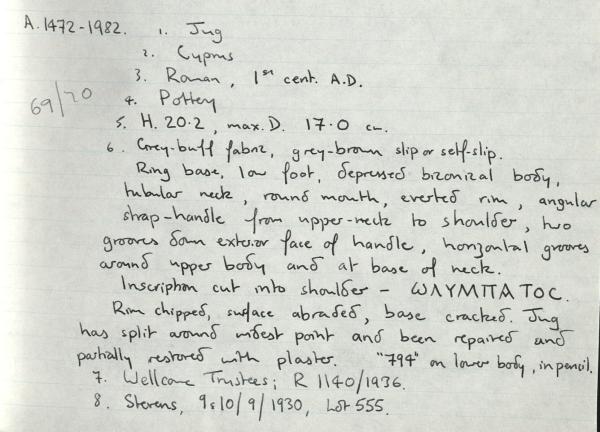 A.1472-1982. 1. Jug
2. Cyprus
3. Roman, 1st cent. A.D.
69/70
4. Pottery
5. H. 20.2, max. D. 17.0 cm.
6. Grey-buff fabric, grey-brown slip or self-slip.
Ring base, low foot, depressed biconical body,
tubular neck, round mouth, everted rim, angular
strap-handle from upper-neck to shoulder, two
grooves down exterior face of handle, horizontal grooves
around upper body and at base of neck.
Inscription cut into shoulder - ωΛΥΜΠΑ ΤΟC.
Rim chipped, surface abraded, base cracked. Jug
has split around widest point and been repaired and
partially restored with plaster. "794" on lower body, in pencil.
7. Wellcome Trustees; R 1140/1936.
8. Stevens, 9&10/9/1930, Lot 555.